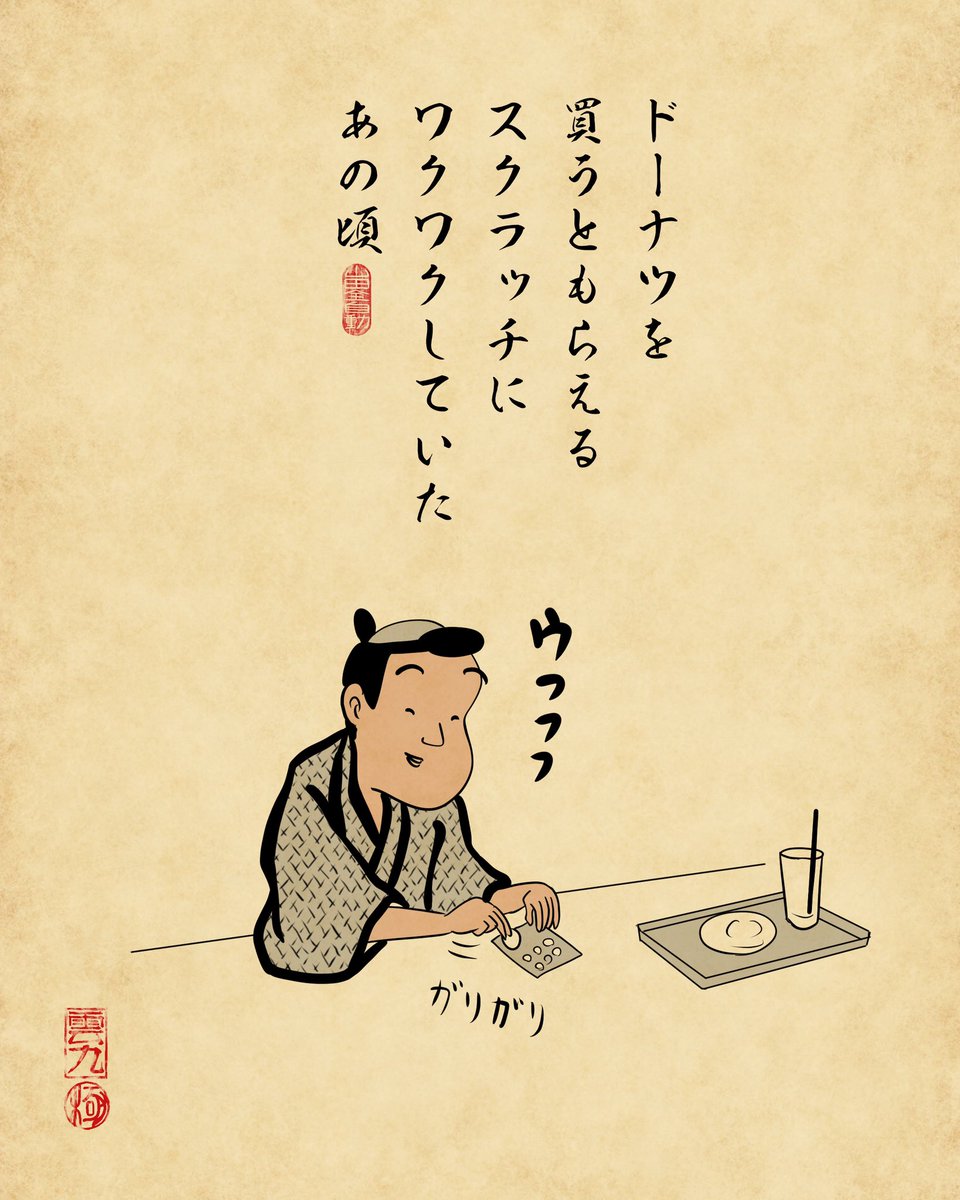 ドーナツを
買うともらえる
スクラッチに
ワクワクしていた
あの頃
ウフフフ
ガリガリ